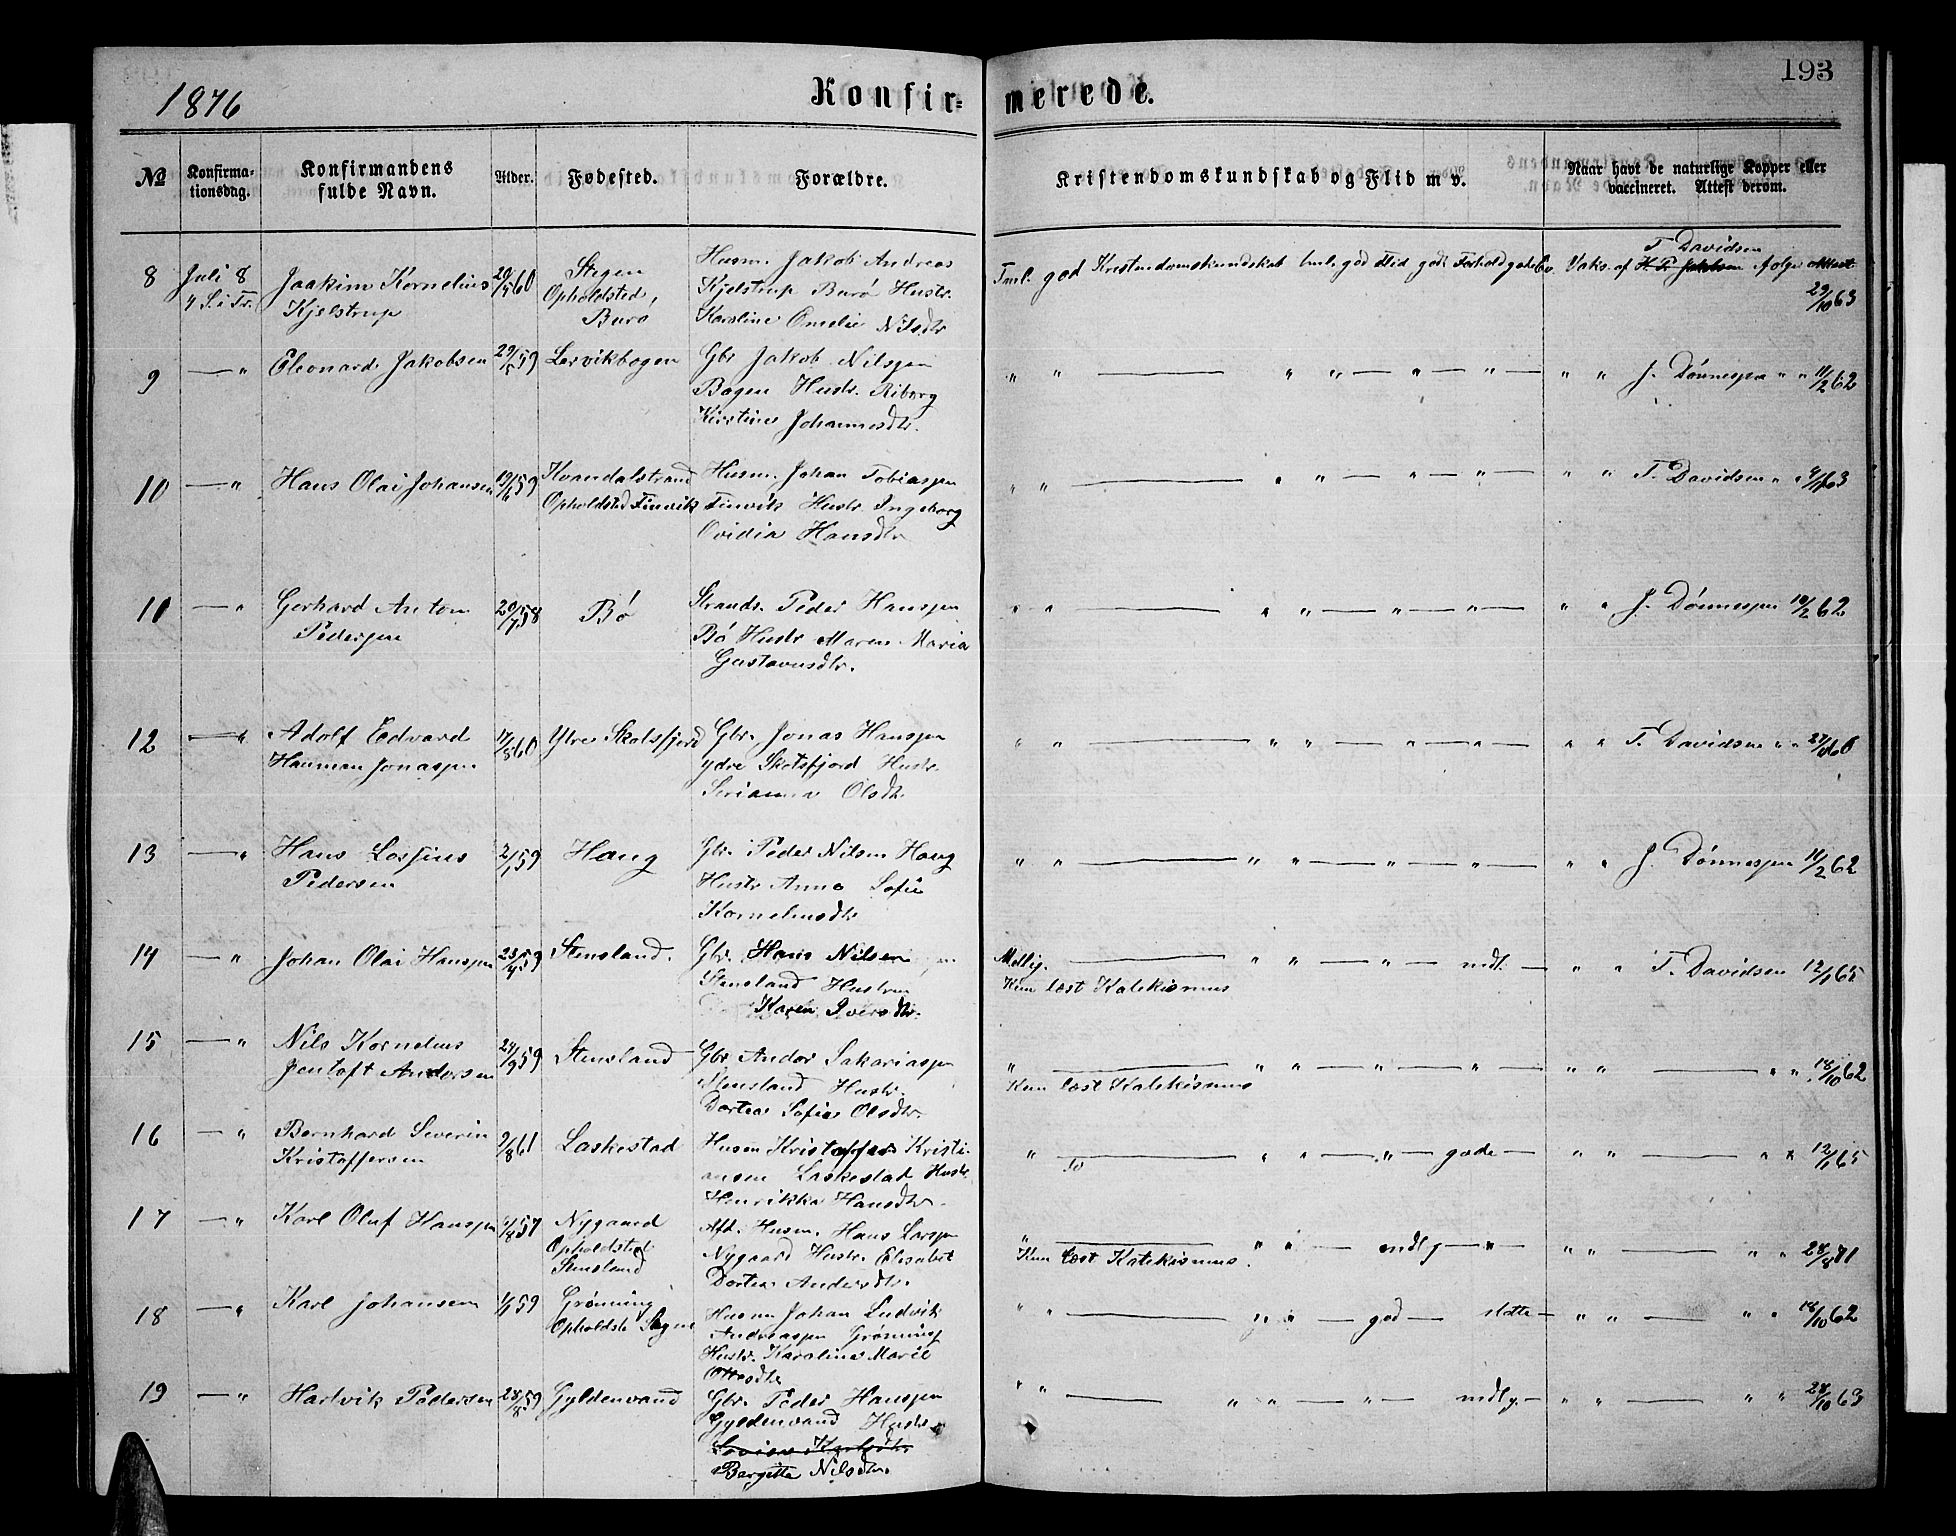 1876
Konfir-
merede.
193
№
Konfirma-
tionsdag.
Konfirmandens
fulde Navn.
Alder.
Fødested.
Forældre.
Kristendomskundskab og Flid m v.
Naar havt de naturlige Kopper eller
vaccineret. Attest derom.
8
Juli 8
4 S. i Tr.
Joakim Kornelius
Kjelstrup
Stegen
Opholdsted,
Burø
Husm. Jakob Andreas
Kjelstrup Burø Hustr.
Karoline Omelie Nilsdtr
Tml. god Kristendomskundskab tml. god Flid godt Forhold
T. Davidsen
Vaks. af
29/10 63
9
— "
Eleonard Jakobsen
29/5 59
Lervikbogen
Gbr Jakob Nilssen
Bogen Hustr. Riborg
Kirstine Johannesdtr.
J. Dønnessen " " 11/2 62
10
— "
Hans Olai Johansen
Kvandalstrand
Opholdsted Finvik
Husm. Johan Tobiassen
Finvik Hustr Ingeborg
Ovidia Hansdtr
T. Davidsen
11
— "
Gerhard Anton
Pedersen
20/7 58
Bø
Strands. Peder Hanssen
Bø Hustr Maren Maria
Gustavusdtr.
J. Dønnessen 10/2 62
12
— "
Adolf Edvard
Hanman Jonassen
17/8 60
Ytre Skotsfjord
Gbr. Jonas Hanssen
ydre Skotsfjord Hustr.
Olsdtr
T. Davidsen
13
— "
Hans Lossius
Pedersen
2/1 59
Haug
Gbr. Peder Nilsen Haug
Hustr Anna Sofie
Kornelinsdtr
J. Dønnessen 11/2 62
14
— "
Johan Olai Hanssen
23/4 59
Stensland.
Gbr. Hans Nilsen
Stensland Hustru
Karen Iversdtr.
Mdlig.
Kun læst Katekismus
mdl. —
T. Davidsen 12/1 65
15
— "
Nils Kornelius
Jentoft Andersen
24/9 59
Stensland
Gbr Andor Sakariassen
Stensland Hustr.
Dortea Sofie Olsdtr.
Kun læst Katekismus
18/10 62
16
— "
Bernhard Severin
Kristoffersen
9/8 61
Laskestad
Husm Kristoffer Kristi-
ansen Laskestad Hustr.
Henrikka Hansdtr.
gode —
12/1 65
17
— "
Karl Oluf Hanssen
Nygaard
Opholdsted
Stensland
Afd. Husm. Hans Larssen
Nygaard Hustr. Elisabet
Dortea Andersdtr.
Kun læst Katekismus.
mdlg
28/8 71
18
— "
Karl Johansen
1/1 59
Grønning
Husm Johan Ludvik
Andreassen Grønning
Hustr. Karoline Marie
Ottesdtr
god
slette —
18/10 62
19
— "
Hartvik Pedersen
28/8 59
Gyldenvand
Gbr. Peder Hanssen
Gyldenvand Hustr
Bergitte Nilsdtr.
mdlg. —
28/10 63